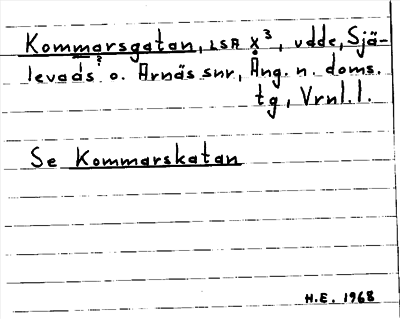 Kommarsgatan, LSA X³, udde, Själevads o. Arnäs snr, Ång. n. doms. tg, Vrnl.l.
Se Kommarskatan
H.E. 1968